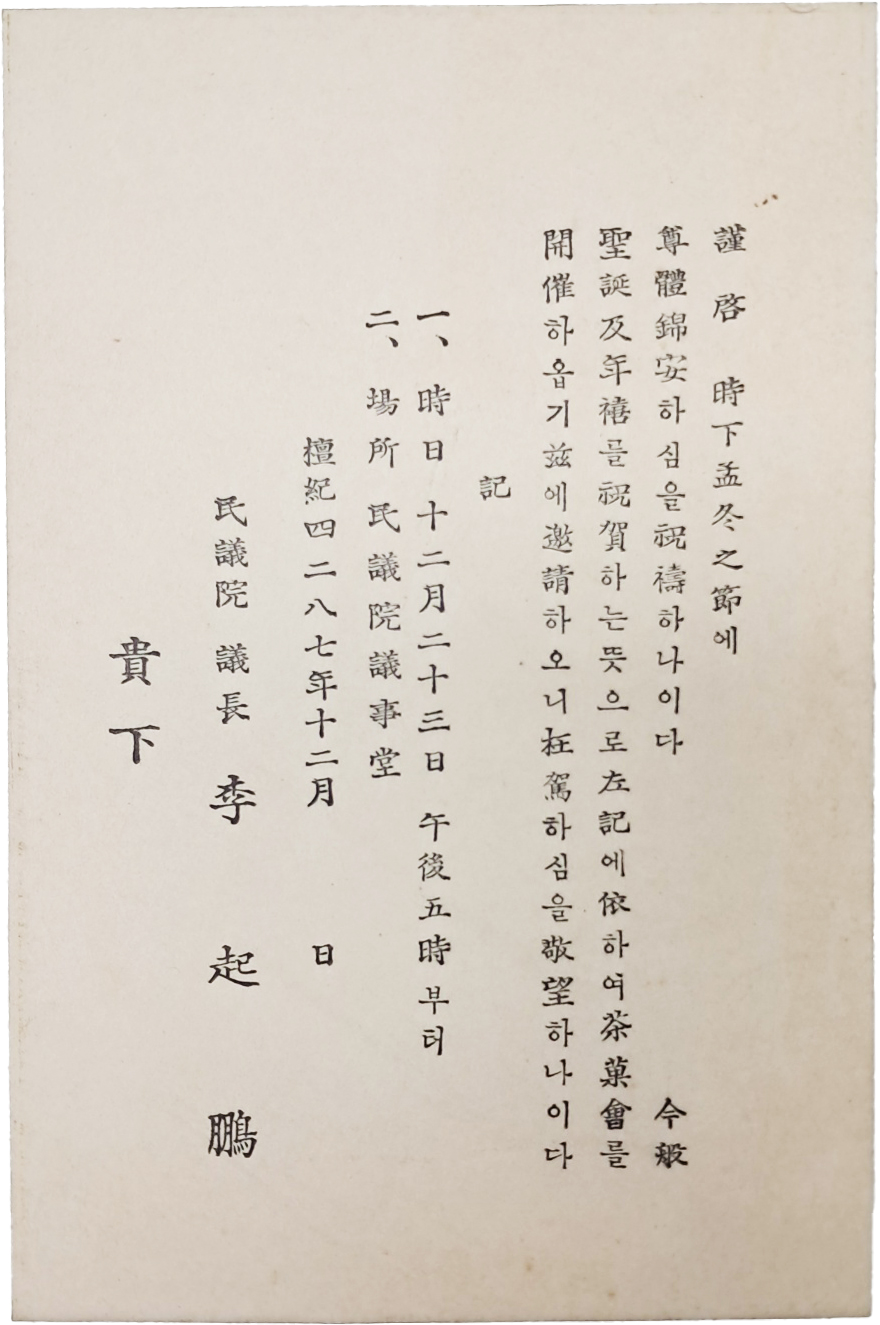 謹啓 時下孟冬之節에
尊體錦安하심을祝禱하나이다 今般
聖誕及年禧를祝賀하는뜻으로左記에依하여茶菓會를
開催하옵기玆에邀請하오니枉駕하심을敬望하나이다
記
一、時日 十二月二十三日 午後五時부터
二、場所 民議院議事堂
檀紀四二八七年十二月 日
民議院 議長 李起鵬
貴下